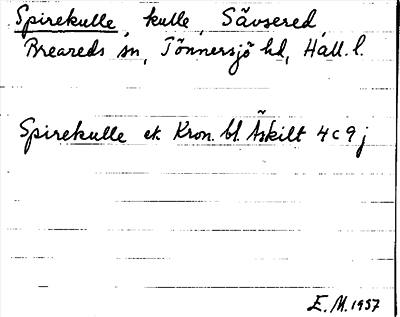 Spirekulle, kulle, Sävsered
Breareds sn, Tönnersjö hd, Hall. l.
Spirekulle ek. Kron. bl Äskilt 4c9j
E. M. 1957